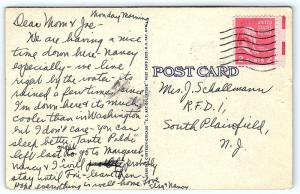 Monday Morning
Dear Mom & Joe-
We are having a nice
time down here! Nancy
especially - we live
right by the water - its
rained a few times since
I'm down here its much
cooler than in Washington
but I don't care - you can
sleep better. Tante
left last to go to Margaret
Nancy & I will probably
stay until Fri - leastern
Hope everything is well - home
Nancy
POST CARD
Mrs. J. Schallmann
R.F.D. 1,
South Plainfield,
N. J.